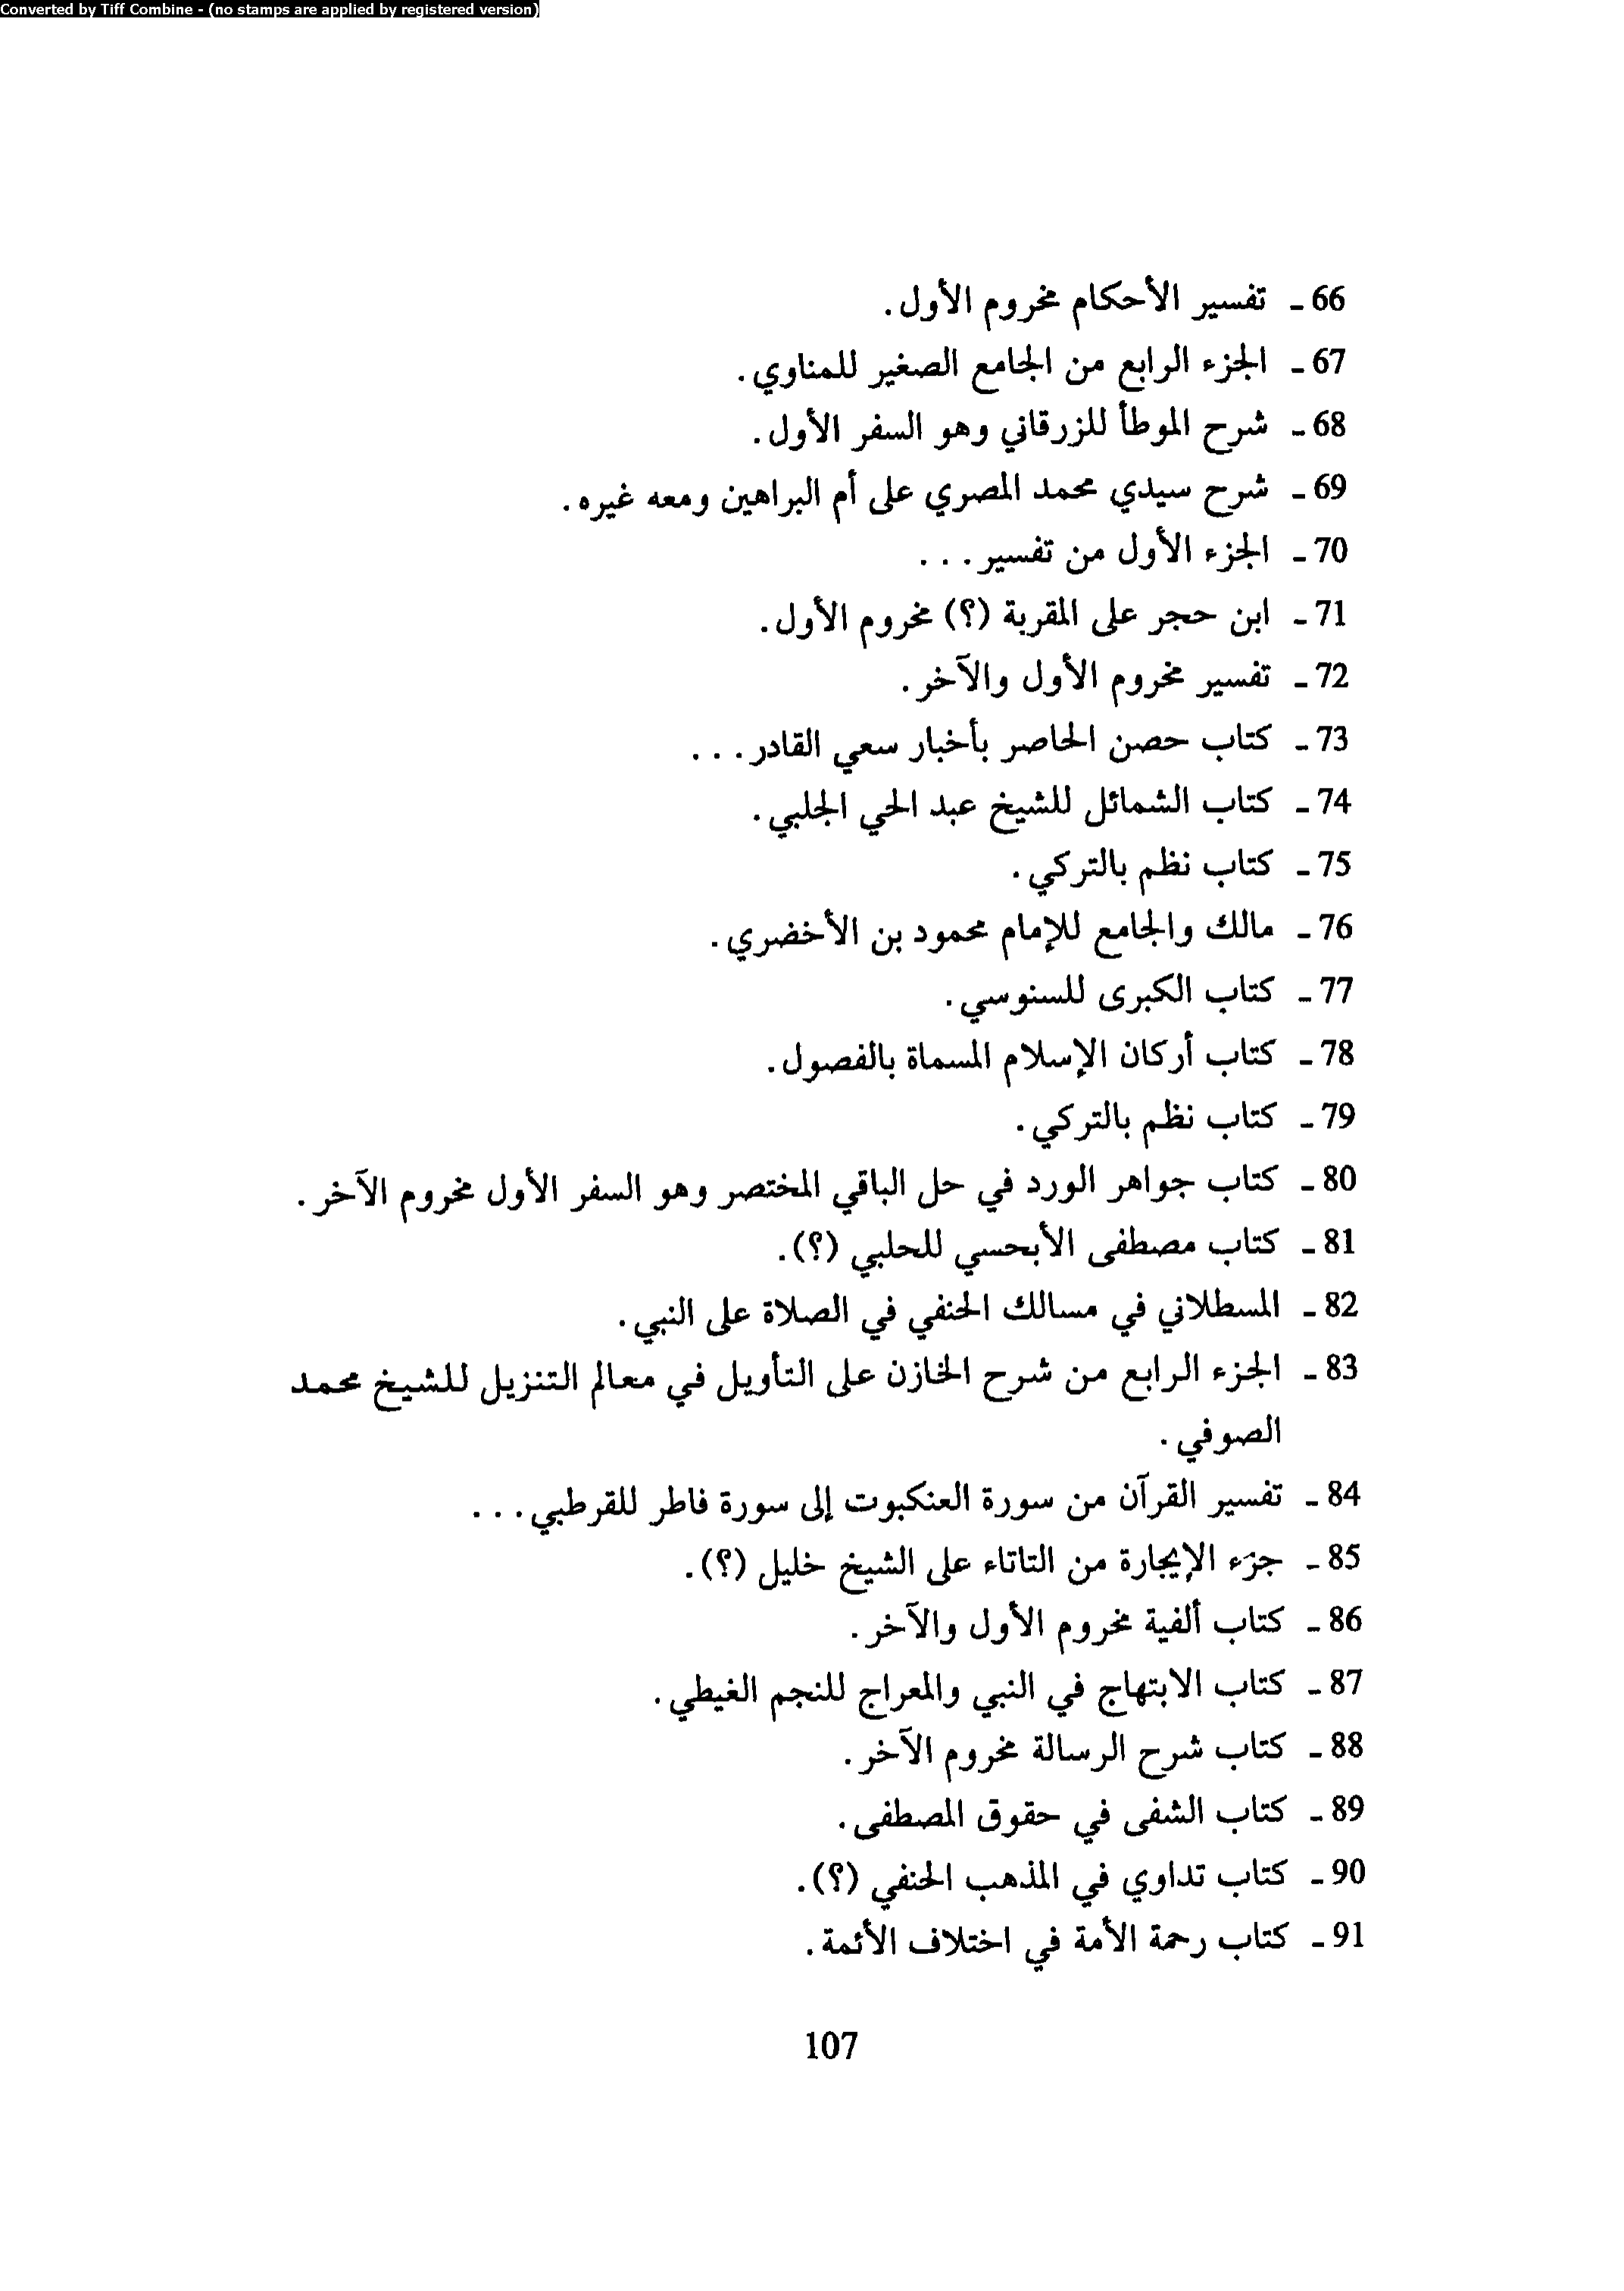 Converted by Tiff Combine - (no stamps are applied by registered version)
66 ـ تفسير الأحكام مخروم الأول.
67 ـ الجزء الرابع من الجامع الصغير للمناوي.
68 ـ شرح الموطأ للزرقاني وهو السفر الأول.
69 ـ شرح سيدي محمد المصري على أم البراهين ومعه غيره.
70 ـ الجزء الأول من تفسير...
71 ـ ابن حجر على المقربة (؟) مخروم الأول.
72 ـ تفسير مخروم الأول والآخر.
73 ـ كتاب حصن الحاصر بأخبار سعي القادر...
74 ـ كتاب الشمائل للشيخ عبد الحي الجلبي.
75 ـ كتاب نظم بالتركي.
76 ـ مالك والجامع للإمام محمود بن الأخضري.
77 ـ كتاب الكبرى للسنوسي.
78 ـ كتاب أركان الإسلام المسماة بالفصول.
79 ـ كتاب نظم بالتركي.
80 ـ كتاب جواهر الورد في حل الباقي المختصر وهو السفر الأول مخروم الآخر.
81 ـ كتاب مصطفى الأبحسي للحلبي (؟).
82 ـ المسطلاني في مسالك الحنفي في الصلاة على النبي.
83 ـ الجزء الرابع من شرح الخازن على التأويل في معالم التنزيل للشيخ محمد
الصوفي.
84 ـ تفسير القرآن من سورة العنكبوت إلى سورة فاطر للقرطبي...
85 ـ جزء الإيجارة من التاتاء على الشيخ خليل (؟).
86 ـ كتاب ألفية مخروم الأول والآخر.
87 ـ كتاب الابتهاج في النبي والمعراج للنجم الغيطي.
88 ـ كتاب شرح الرسالة مخروم الآخر.
89 ـ كتاب الشفى في حقوق المصطفى.
90 ـ كتاب تداوي في المذهب الحنفي (؟).
91 ـ كتاب رحمة الأمة في اختلاف الأئمة.
107